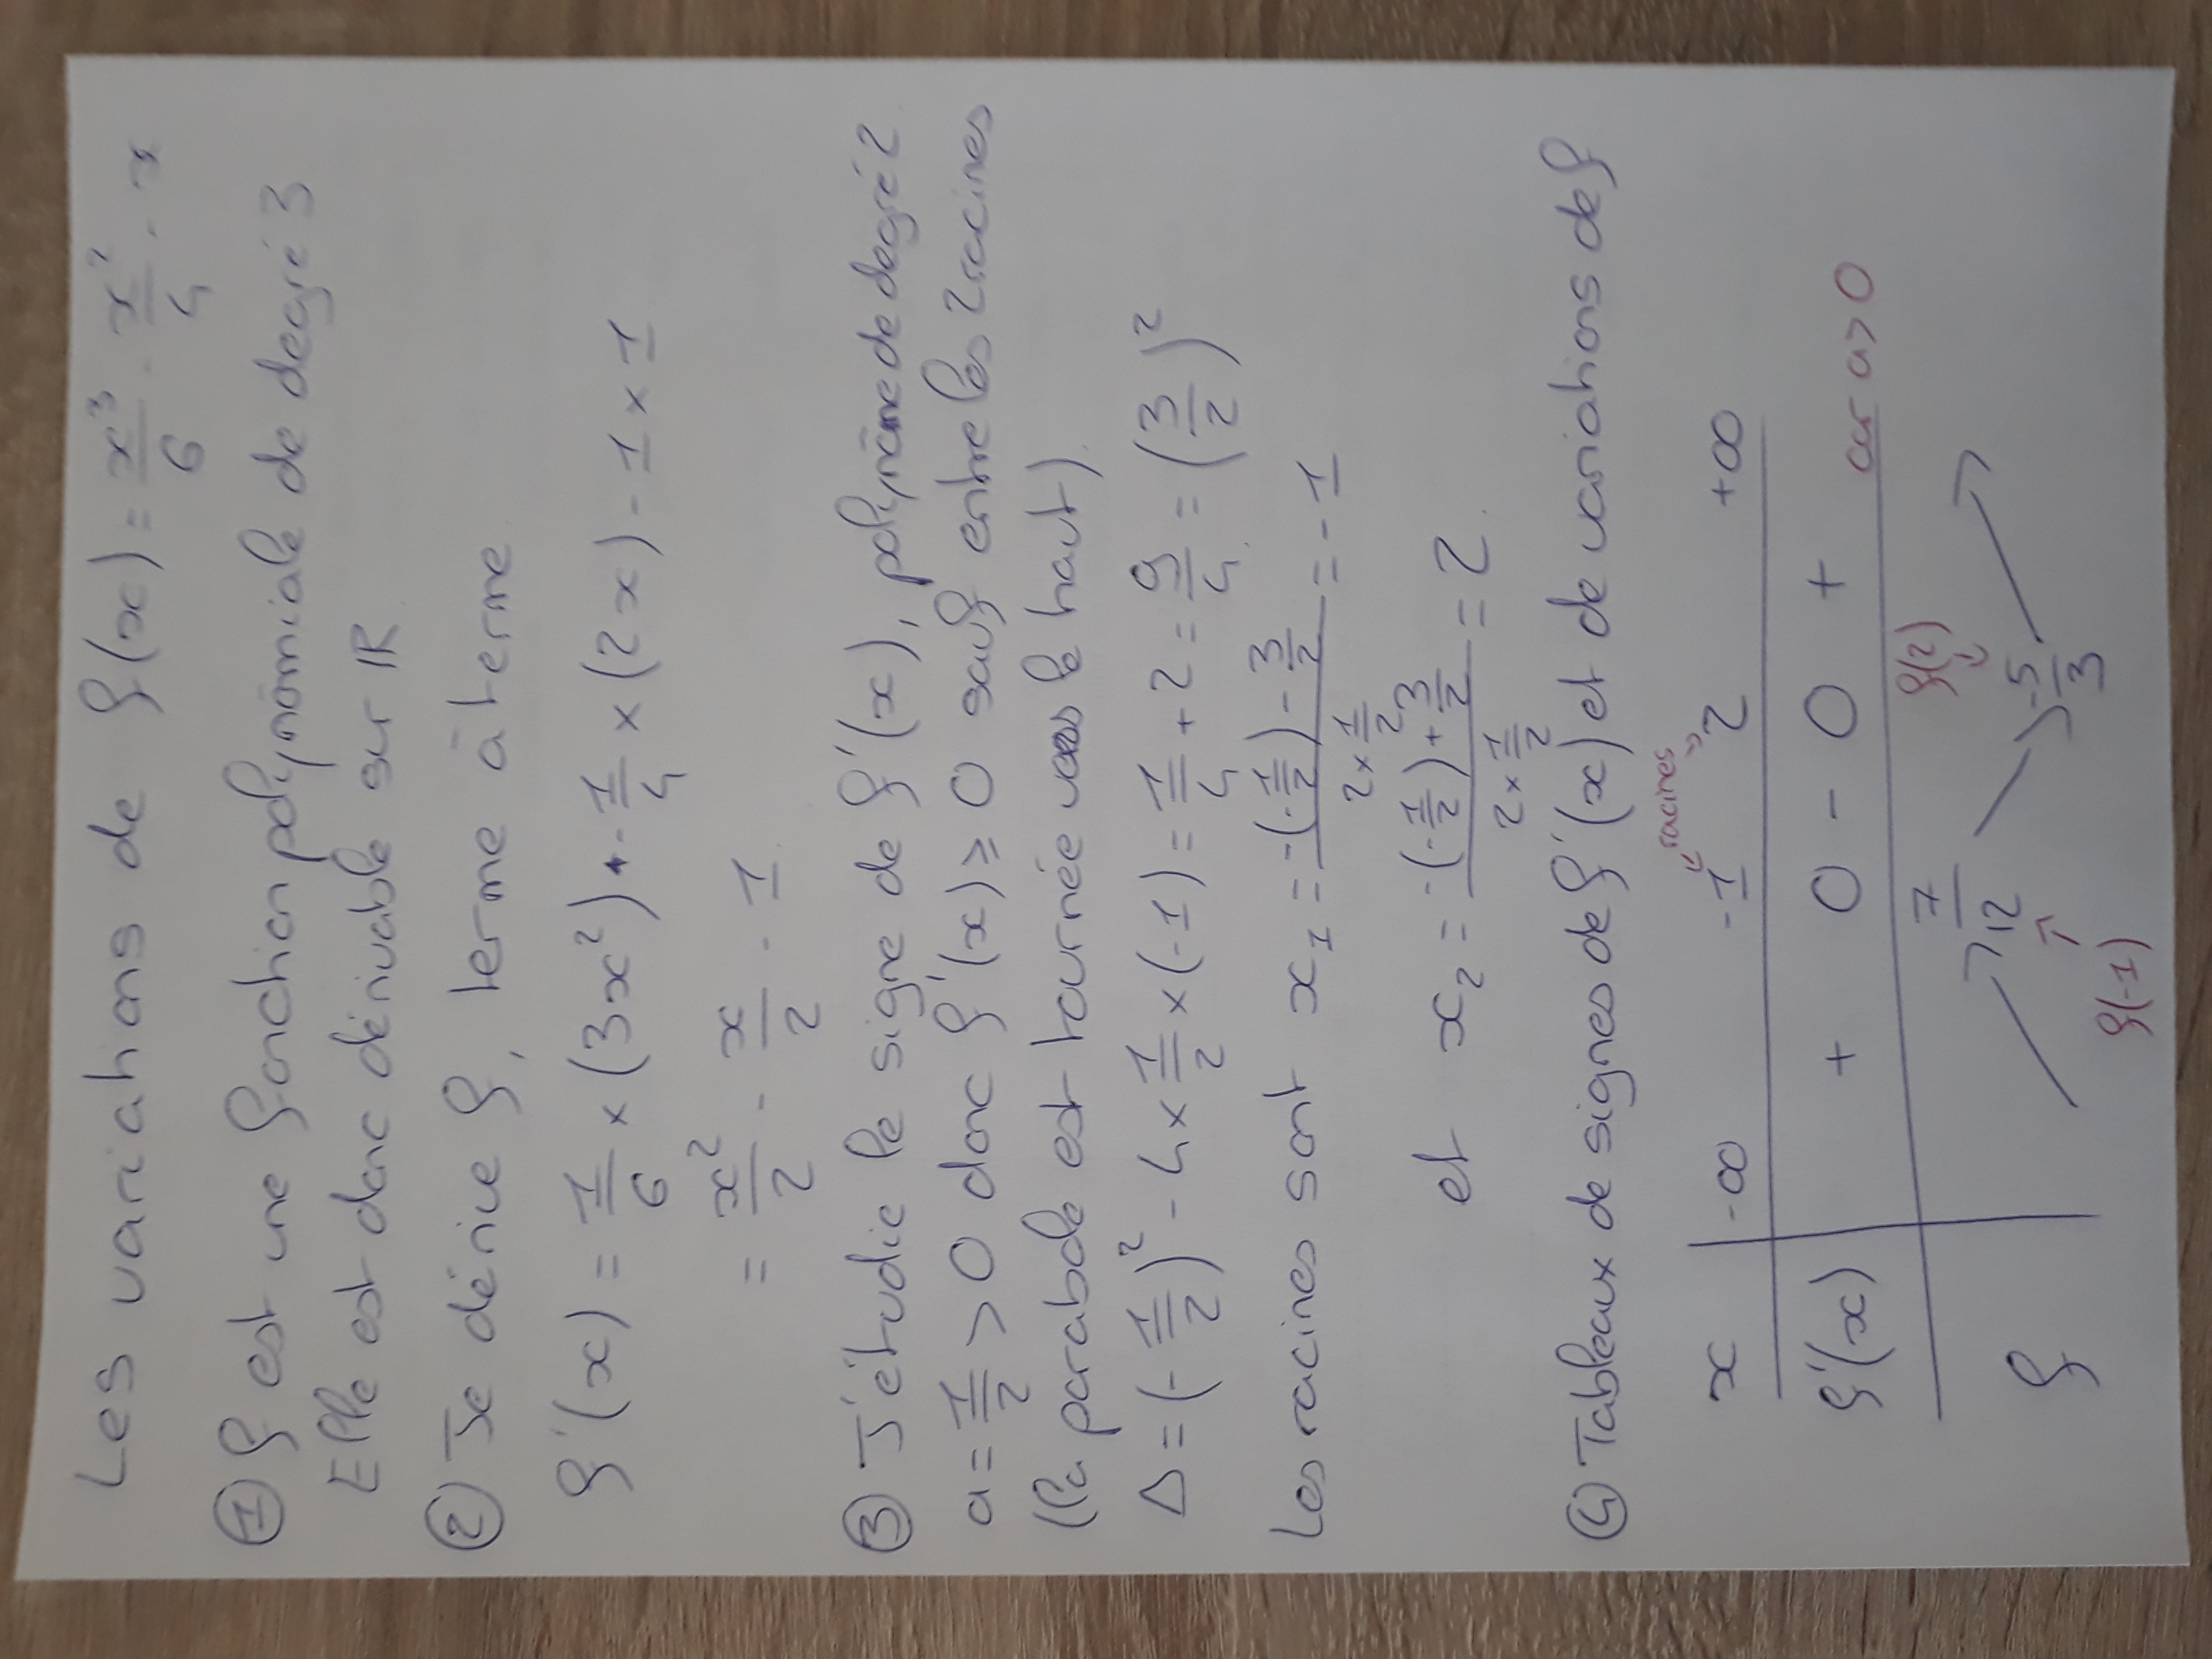 Les variations de f(x) = x³/6 - x²/4 - x
① f est une fonction polynômiale de degré 3
Elle est donc dérivable sur ℝ
② Je dérive f, terme à terme
f'(x) = 1/6 × (3x²) + - 1/4 × (2x) - 1 × 1
= x²/2 - x/2 - 1
③ J'étudie le signe de f'(x), polynôme de degré 2
a = 1/2 > 0 donc f'(x) ⩾ 0 sauf entre les 2 racines
(la parabole est tournée vers le haut)
Δ = (-1/2)² - 4 × 1/2 × (-1) = 1/4 + 2 = 9/4 = (3/2)²
Les racines sont x₁ = (-(-1/2) - 3/2)/(2 × 1/2) = -1
et x₂ = (-(-1/2) + 3/2)/(2 × 1/2) = 2.
④ Tableaux de signes de f'(x) et de variations de f
racines
x -∞ -1 2 +∞
f'(x) + 0 - 0 + car a > 0
f(2)
f ↗ 7/12 ↘ -5/3 ↗
f(-1)